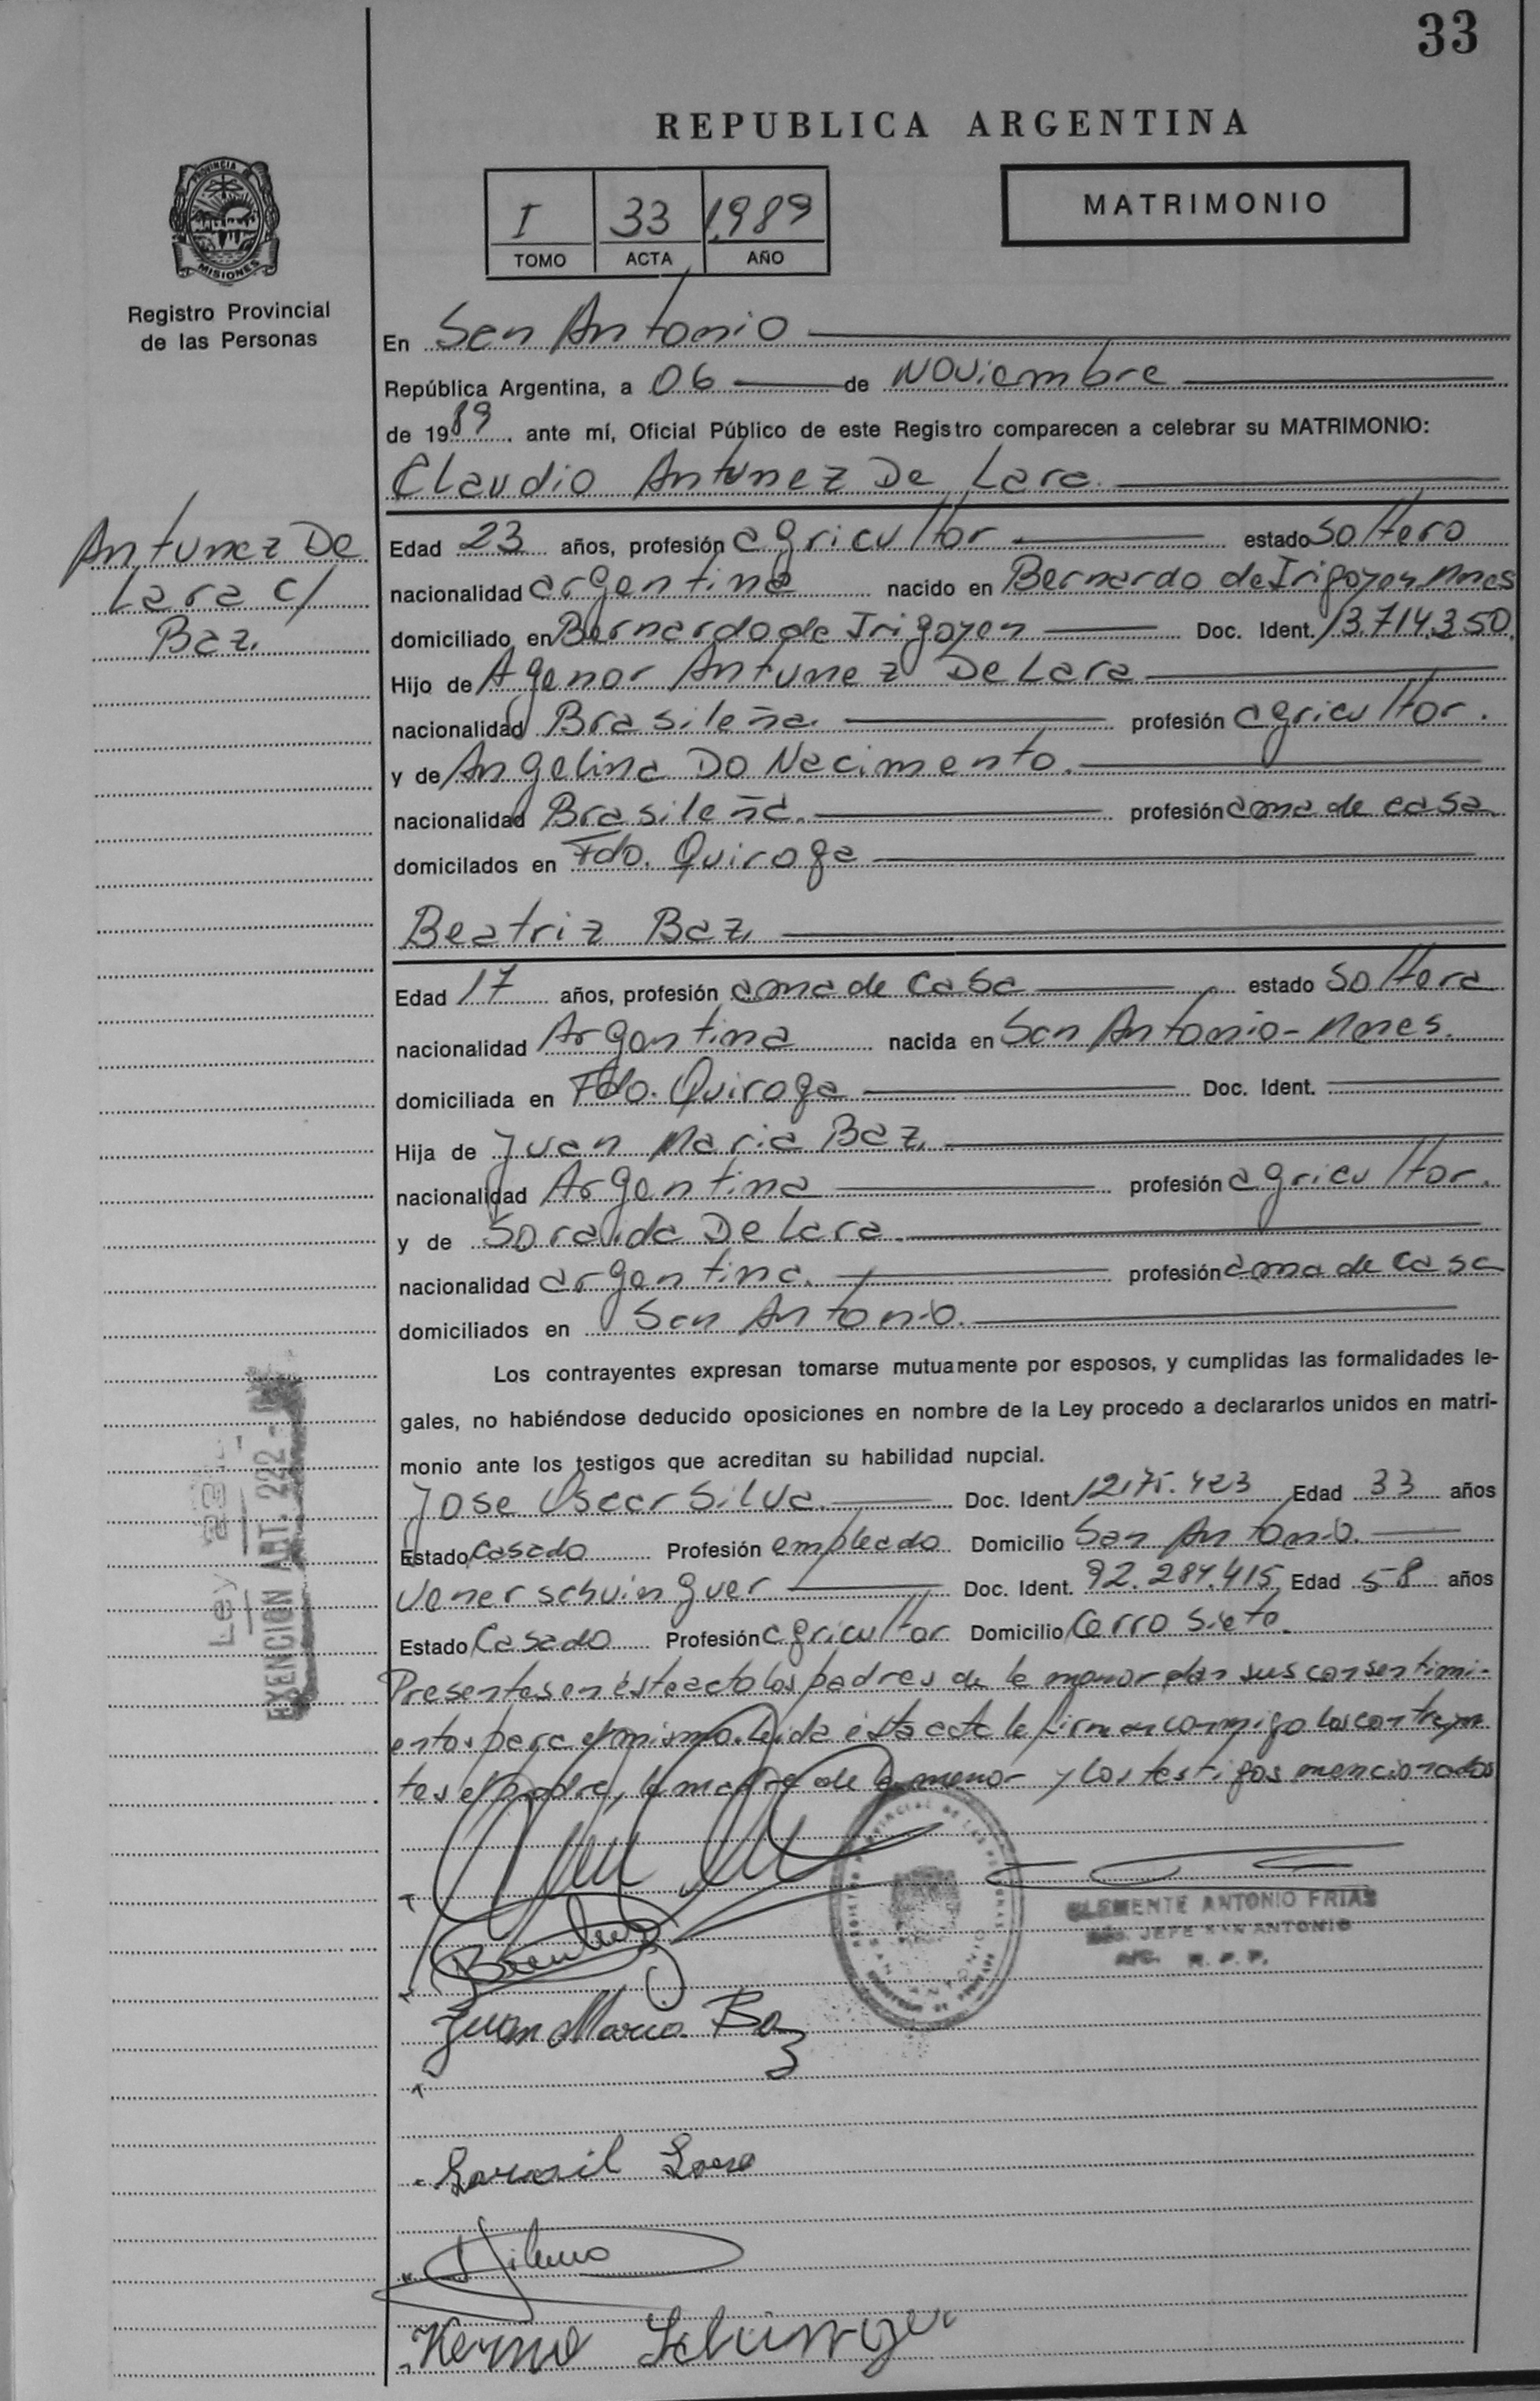 33
REPUBLICA ARGENTINA
PROVINCIA DE
MISIONES
Registro Provincial
de las Personas
I 33 1989
TOMO ACTA AÑO
MATRIMONIO
En San Antonio
República Argentina, a 06 de Noviembre
de 1989. ante mí, Oficial Público de este Registro comparecen a celebrar su MATRIMONIO:
Claudio Antunez De Lara.
Antunez De
Lara c/
Baz.
Edad 23 años, profesión agricultor estado soltero
nacionalidad argentina nacido en Bernardo de Irigoyen Mnes
domiciliado en Bernardo de Irigoyen Doc. Ident. 13.714.350.
Hijo de Agenor Antunez De Lara
nacionalidad Brasileña. profesión agricultor.
y de Angelina Do Nacimento.
nacionalidad Brasileña. profesión ama de casa
domicilados en Fdo. Quiroga
Beatriz Baz.
Edad 17 años, profesión ama de casa estado soltera
nacionalidad Argentina nacida en San Antonio - Mnes.
domiciliada en Fdo. Quiroga Doc. Ident.
Hija de Juan Maria Baz.
nacionalidad Argentina profesión agricultor.
y de De Lara.
nacionalidad argentina. profesión ama de casa
domiciliados en San Antonio.
Los contrayentes expresan tomarse mutuamente por esposos, y cumplidas las formalidades le-
gales, no habiéndose deducido oposiciones en nombre de la Ley procedo a declararlos unidos en matri-
monio ante los testigos que acreditan su habilidad nupcial.
Jose Oscar Silva. Doc. Ident 12.175.423 Edad 33 años
Estado Casado Profesión empleado Domicilio San Antonio.
Vener schuinguer Doc. Ident. 92.284.415 Edad 58 años
Estado Casado Profesión agricultor Domicilio Cerro Siete.
Presentes en éste acto los padres de la menor dan sus consentimi-
entos para el mismo. Leida ésta acta la firman conmigo los contrayen
tes el padre, la madre de la menor y los testigos mencionados
EXENCION ART. 222
Ley
CLEMENTE ANTONIO FRIAS
JEFE SAN ANTONIO
A/C. R. P. P.
Juan Maria Baz
Lara
Silva